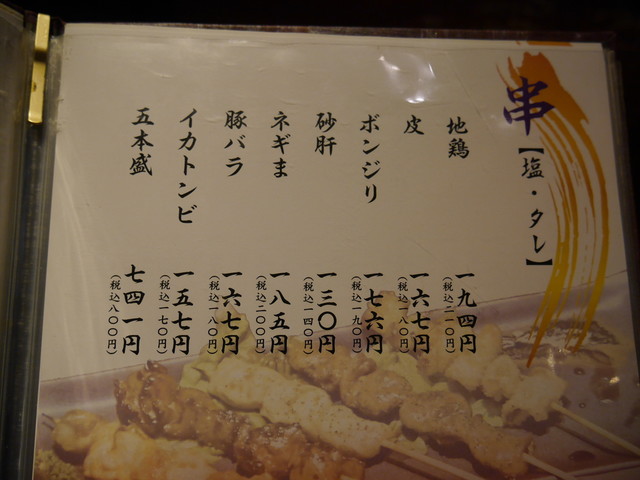 串【塩・タレ】
地鶏 一九四円 (税込二一〇円)
皮 一六七円 (税込一八〇円)
ボンジリ 一七六円 (税込一九〇円)
砂肝 一三〇円 (税込一四〇円)
ネギま 一八五円 (税込二〇〇円)
豚バラ 一六七円 (税込一八〇円)
イカトンビ 一五七円 (税込一七〇円)
五本盛 七四一円 (税込八〇〇円)